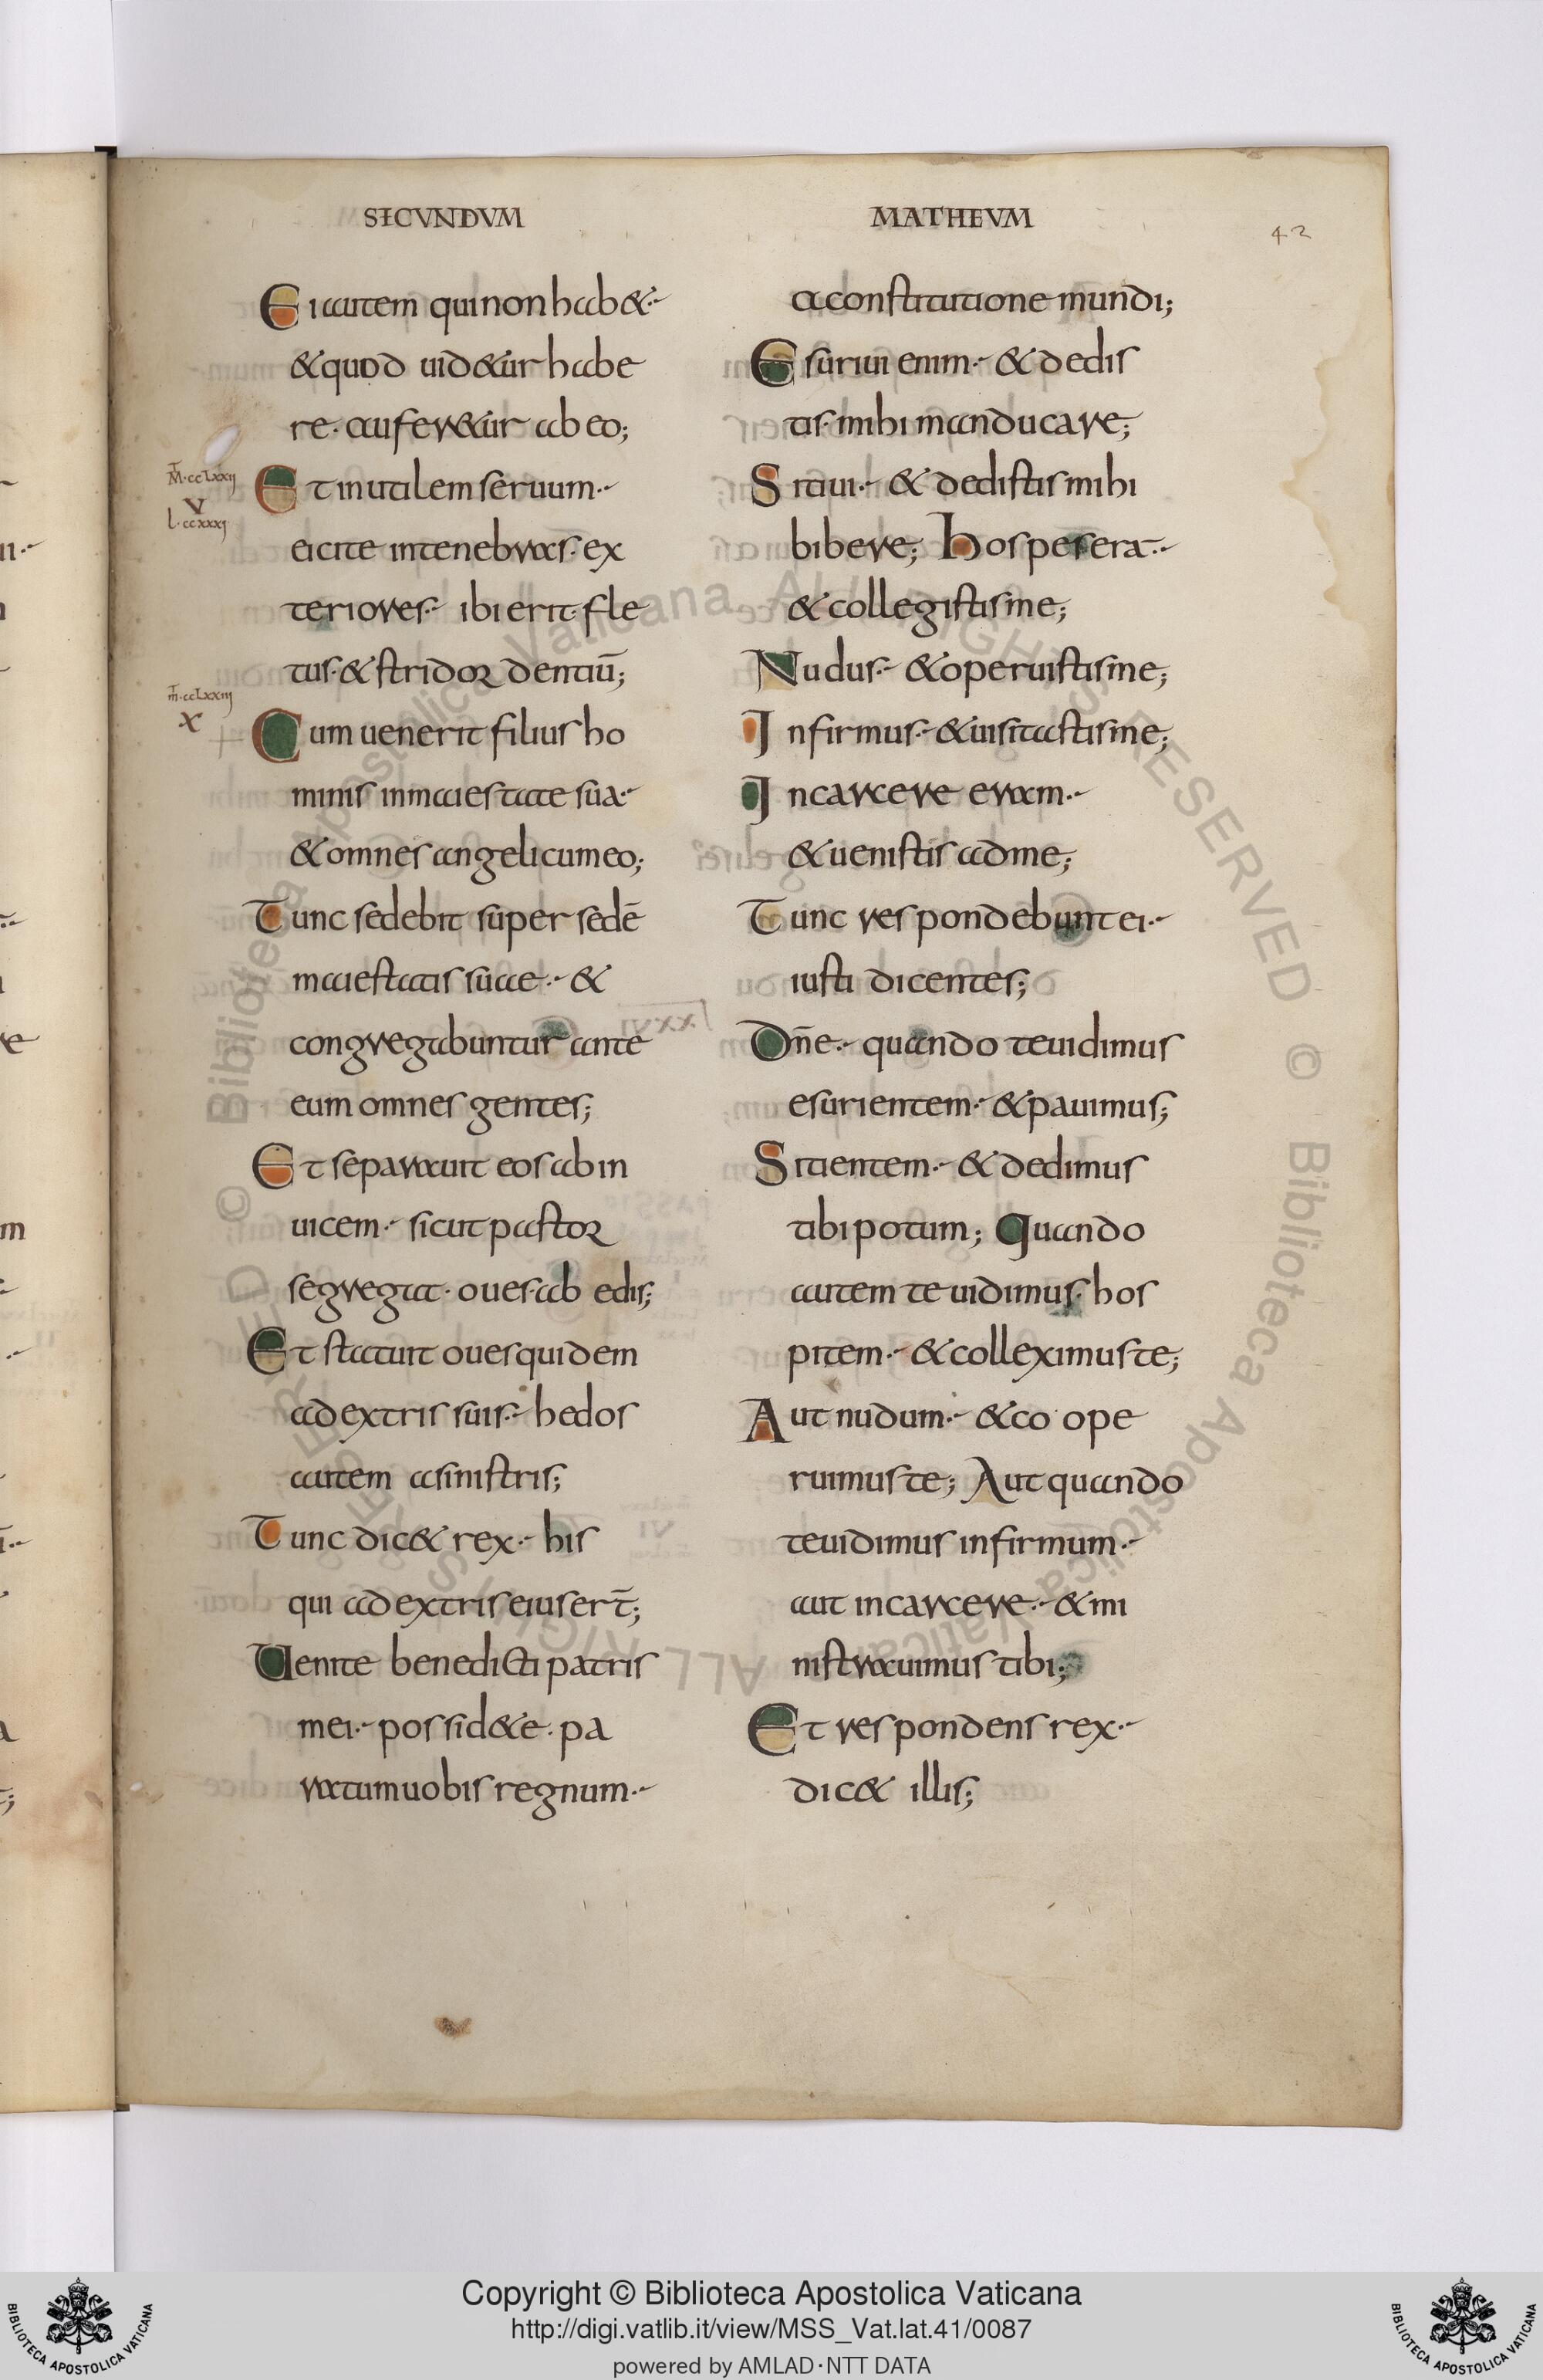 SECUNDUM
MATHEUM
42
Ei autem qui non hab&
& quod uid&ur habe
re. aufer&ur ab eo;
M̄·ccLxxij
V
L·ccxxxj
Et inutilem seruum
eicite in tenebras. ex
teriores ibi erit fle
tus. & stridor dentiū;
m̄·ccLxxiij
X
Cum uenerit filius ho
minis in maiestate sua
& omnes angeli cum eo;
Tunc sedebit super sedē
maiestatis suae &
congregabuntur ante
eum omnes gentes;
Et separauit eos ab in
uicem sicut pastor
segregat. oues. ab edis;
Et statuit oues quidem
ad extris suis hedos
autem a sinistris;
Tunc dic& rex his
qui ad extris eius er̄t;
Uenite benedicti patris
mei possid&e. pa
ratum uobis regnum
a constitutione mundi;
Esuriui enim & dedis
tis. mihi manducare;
Sitiui & dedistis mihi
bibere; hospes erā
& collegistis me;
Nudus & operuistis me;
Infirmus & uisitastis me;
In carcere eram
& uenistis ad me;
Tunc respondebunt ei
iusti dicentes;
Dn̄e quando te uidimus
esurientem & pauimus;
Sitientem & dedimus
tibi potum; Quando
autem te uidimus. hos
pitem & colleximus te;
Aut nudum & co ope
ruimus te; Aut quando
te uidimus infirmum
aut in carcere & mi
nistrauimus tibi;
Et respondens rex
dic& illis;
Copyright © Biblioteca Apostolica Vaticana
http://digi.vatlib.it/view/MSS_Vat.lat.41/0087
powered by AMLAD·NTT DATA
BIBLIOTECA APOSTOLICA VATICANA
BIBLIOTECA APOSTOLICA VATICANA